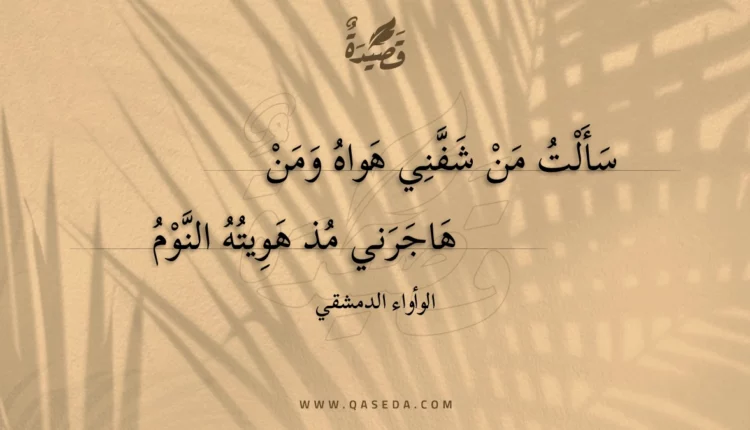 قَصِيدَةٌ
سَأَلْتُ مَنْ شَفَّنِي هَواهُ وَمَنْ
هَاجَرَني مُذ هَوِيتُهُ النَّوْمُ
الوأواء الدمشقي
WWW.QASEDA.COM